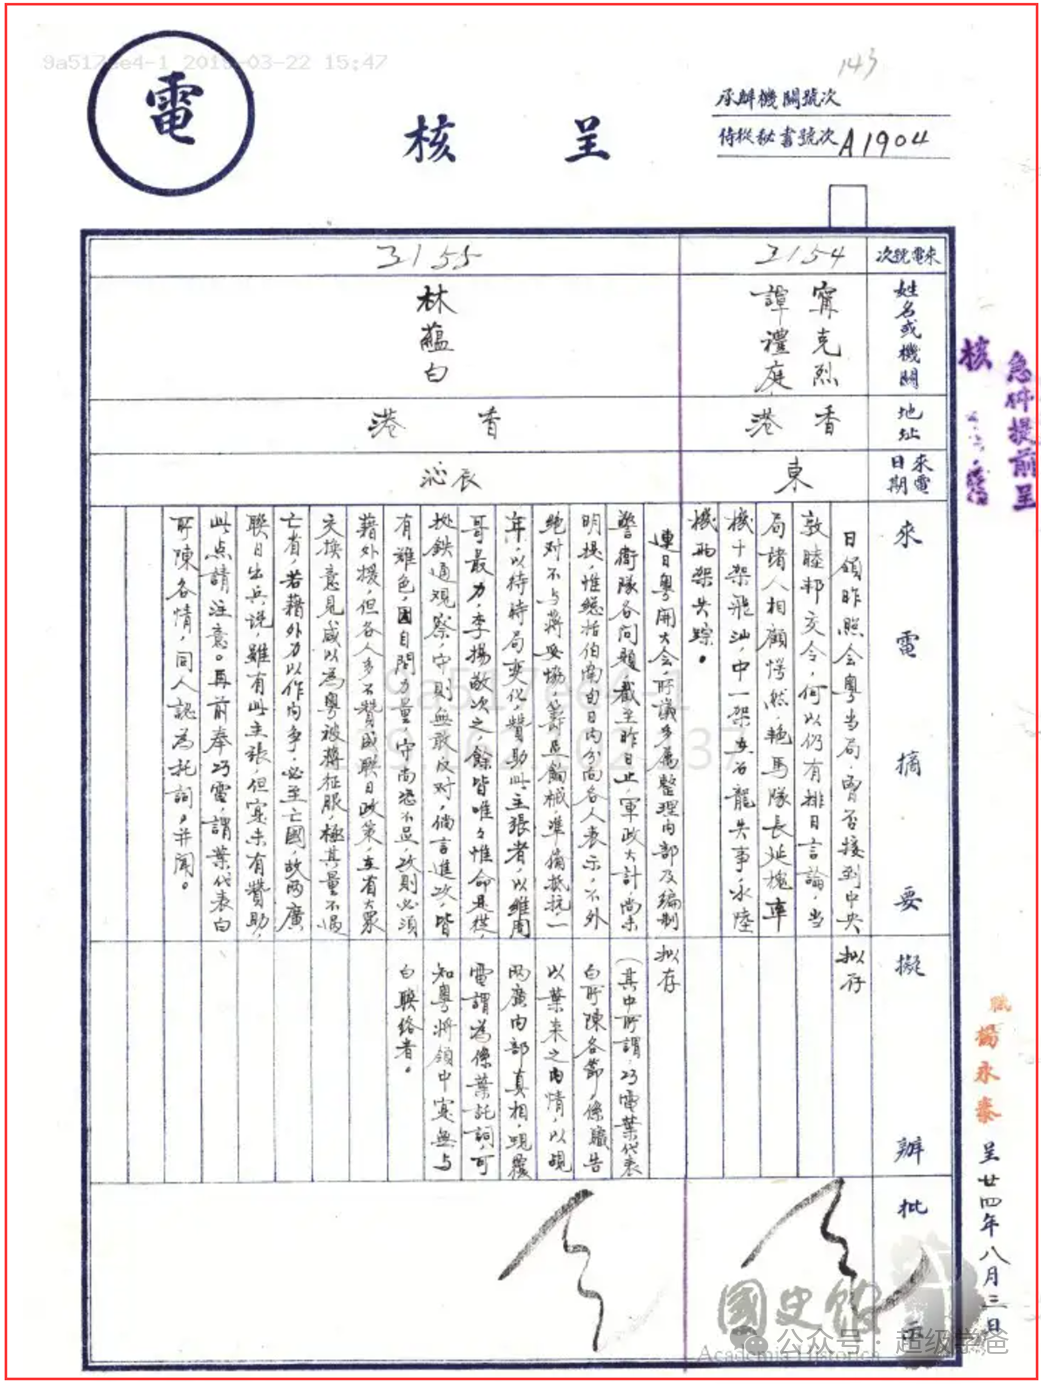 9a517ee4-1 2019-03-22 15:47
143
電
呈核
承辦機關號次
侍從秘書號次 A1904
來電號次
3154
3155
姓名或機關
甯克烈
譚禮庭
林蘊白
地址
香港
香港
來電日期
東
沁辰
來電摘要
日領昨照會粵當局，曾否接到中央
敦睦邦交令，何以仍有排日言論，當
局諸人相顧愕然，艳馬隊長延槐率
機十架飛汕，中一架在石龍失事，永陸
機兩架失踪。
連日粵開大會，所議多屬整理內部及編制
警衛隊各問題，截至昨日止，軍政大計，尚未
明提，惟總括伯南由日內分向各人表示，不外
絕對不与蔣妥協，籌足餉械，準備抵抗一
年，以待時局变化，贊助此主張者，以維周
哥最力，李揚敬次之，餘皆唯々惟命是從，
拠鉄通观察，守則無敢反对，倘言進攻，皆
有难色，因自問力量，守尚恐不足，攻則必須
藉外援，但各人多不贊成联日政策，在省大眾
交換意見，咸以為粵被蔣征服，極其量不過
亡省，若藉外力以作內争，必至亡國，故两廣
联日出兵説，雖有此主張，但实未有贊助，
此点請注意。再前奉巧電，謂葉代表白
所陳各情，同人認為托詞，并聞。
擬辦
拟存
拟存
（其中所謂，巧電葉代表
白所陳各節，係職告
以葉来之内情，以覘
两廣内部真相，現覆
電謂為係葉託詞，可
知粵將領中实無与
白联络者。
批示
急件提前呈
核
職
楊永泰
呈廿四年八月三日
9a517ee4-1
國史館
Academia Historica
公众号：超级学爸